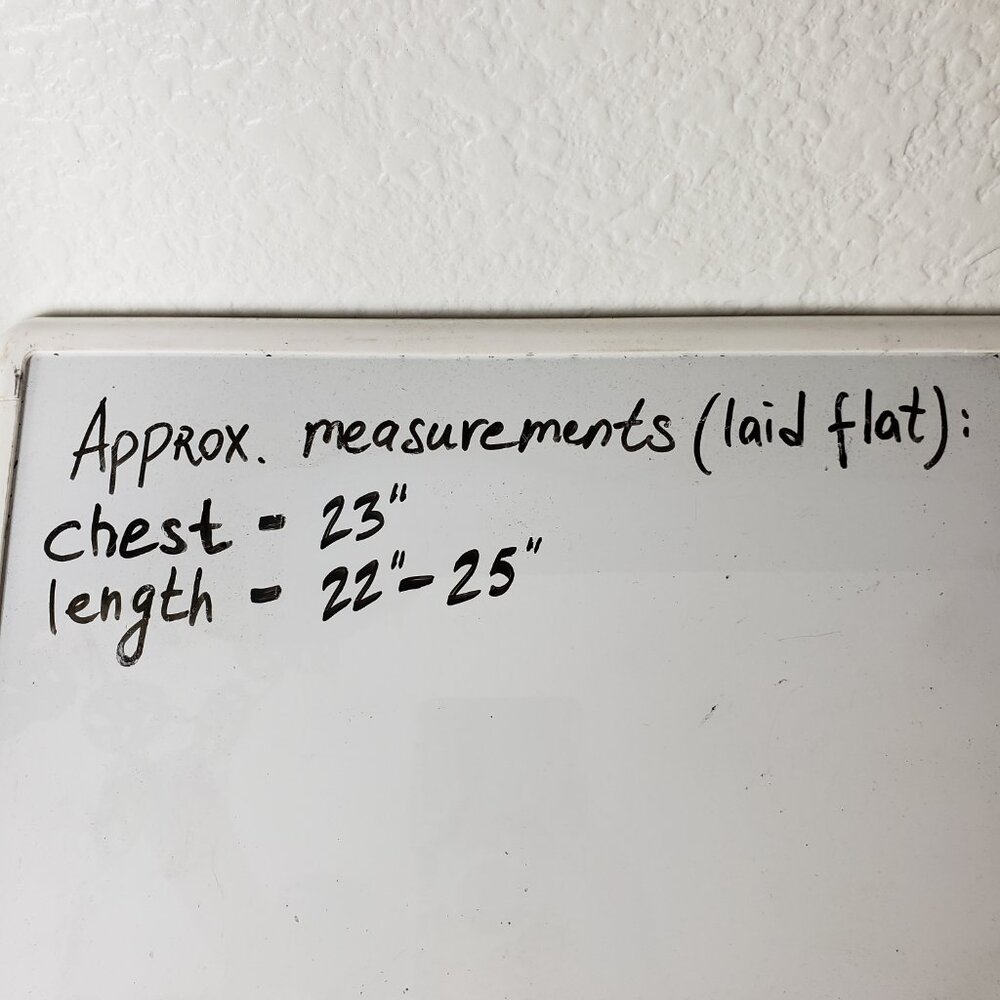 Approx. measurements (laid flat):
chest - 23"
length - 22"- 25"